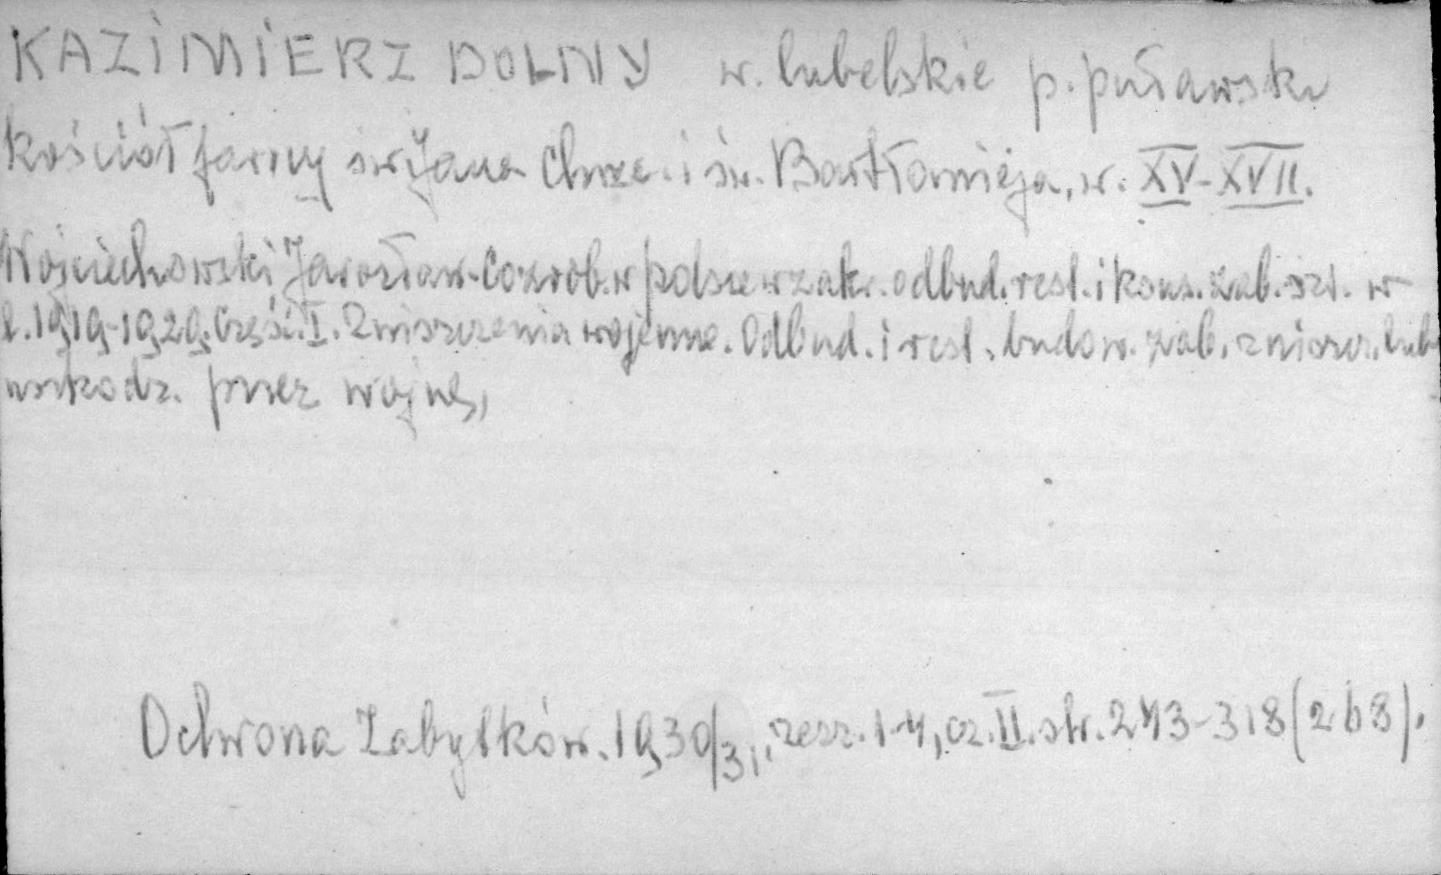 KAZIMIERZ DOLNY w. lubelskie p. puławski
kościół farny św. Jana Chrz. i św. Bartłomieja, w. XV-XVII.
Wojciechowski Jarosław. Co zrob. w polsce w zakr. odbud. rest. i kons. zab. szt. w
l. 1919-1929. Część. I. Zniszczenia wojenne. Odbud. i rest. budow. zab. zniszcz. lub
uszkodz. przez wojnę,
Ochrona Zabytków. 1930/31, zesz. 1-4, cz. II. str. 243-318 (268).